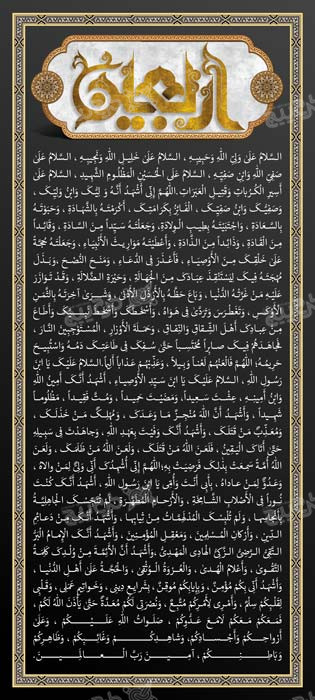 اربعین
السَّلامُ عَلَىٰ وَلِيِّ اللهِ وَحَبِيبِهِ ، السَّلامُ عَلَىٰ خَلِيلِ اللهِ وَنَجِيبِهِ ، السَّلامُ عَلَىٰ
صَفِيِّ اللهِ وَابْنِ صَفِيِّهِ ، السَّلامُ عَلَىٰ الْحُسَيْنِ الْمَظْلُومِ الشَّهِيدِ ، السَّلامُ عَلَىٰ
أَسِيرِ الْكُرُبَاتِ وَقَتِيلِ الْعَبَرَاتِ، اللَّهُمَّ إِنِّي أَشْهَدُ أَنَّهُ وَلِيُّكَ وَابْنُ وَلِيِّكَ ،
وَصَفِيُّكَ وَابْنُ صَفِيِّكَ ، الْفَائِزُ بِكَرَامَتِكَ ، أَكْرَمْتَهُ بِالشَّهَادَةِ ، وَحَبَوْتَهُ
بِالسَّعَادَةِ ، وَاجْتَبَيْتَهُ بِطِيبِ الْوِلادَةِ، وَجَعَلْتَهُ سَيِّداً مِنَ السَّادَةِ ، وَقَائِداً
مِنَ الْقَادَةِ ، وَذَائِداً مِنَ الذَّادَةِ ، وَأَعْطَيْتَهُ مَوَارِيثَ الْأَنْبِيَاءِ ، وَجَعَلْتَهُ حُجَّةً
عَلَىٰ خَلْقِكَ مِنَ الْأَوْصِيَاءِ ، فَأَعْذَرَ فِي الدُّعَاءِ ، وَمَنَحَ النُّصْحَ ،وَبَذَلَ
مُهْجَتَهُ فِيكَ لِيَسْتَنْقِذَ عِبَادَكَ مِنَ الْجَهَالَةِ ، وَحَيْرَةِ الضَّلالَةِ ، وَقَدْ تَوَازَرَ
عَلَيْهِ مَنْ غَرَّتْهُ الدُّنْيَا ، وَبَاعَ حَظَّهُ بِالْأَرْذَلِ الْأَدْنَىٰ ، وَشَرَىٰ آخِرَتَهُ بِالثَّمَنِ
الْأَوْكَسِ ، وَتَغَطْرَسَ وَتَرَدَّىٰ فِي هَوَاهُ ، وَأَسْخَطَكَ وَأَسْخَطَ نَبِيَّكَ وَأَطَاعَ
مِنْ عِبَادِكَ أَهْلَ الشِّقَاقِ وَالنِّفَاقِ ، وَحَمَلَةَ الْأَوْزَارِ ، الْمُسْتَوْجِبِينَ النَّارَ ،
فَجَاهَدَهُمْ فِيكَ صَابِراً مُحْتَسِباً حَتَّىٰ سُفِكَ فِي طَاعَتِكَ دَمُهُ وَاسْتُبِيحَ
حَرِيمُهُ؛ اللَّهُمَّ فَالْعَنْهُمْ لَعْناً وَبِيلاً ، وَعَذِّبْهُمْ عَذَاباً أَلِيماً.السَّلامُ عَلَيْكَ يَا ابْنَ
رَسُولِ اللهِ ، السَّلامُ عَلَيْكَ يَا ابْنَ سَيِّدِ الْأَوْصِيَاءِ ، أَشْهَدُ أَنَّكَ أَمِينُ اللهِ
وَابْنُ أَمِينِهِ ، عِشْتَ سَعِيداً، وَمَضَيْتَ حَمِيداً ، وَمُتَّ فَقِيداً ، مَظْلُوماً
شَهِيداً ، وَأَشْهَدُ أَنَّ اللهَ مُنْجِزٌ مَا وَعَدَكَ ، وَمُهْلِكٌ مَنْ خَذَلَكَ ،
وَمُعَذِّبٌ مَنْ قَتَلَكَ ، وَأَشْهَدُ أَنَّكَ وَفَيْتَ بِعَهْدِ اللهِ ، وَجَاهَدْتَ فِي سَبِيلِهِ
حَتَّىٰ أَتَاكَ الْيَقِينُ ، فَلَعَنَ اللهُ مَنْ قَتَلَكَ ، وَلَعَنَ اللهُ مَنْ ظَلَمَكَ ، وَلَعَنَ
اللهُ أُمَّةً سَمِعَتْ بِذَٰلِكَ فَرَضِيَتْ بِهِ؛ اللَّهُمَّ إِنِّي أُشْهِدُكَ أَنِّي وَلِيٌّ لِمَنْ وَالاهُ ،
وَعَدُوٌّ لِمَنْ عَادَاهُ ، بِأَبِي أَنْتَ وَأُمِّي يَا ابْنَ رَسُولِ اللهِ ، أَشْهَدُ أَنَّكَ كُنْتَ
نُوراً فِي الْأَصْلابِ الشَّامِخَةِ ، وَالْأَرْحَامِ الْمُطَهَّرَةِ، لَمْ تُنَجِّسْكَ الْجَاهِلِيَّةُ
بِأَنْجَاسِهَا ، وَلَمْ تُلْبِسْكَ الْمُدْلَهِمَّاتُ مِنْ ثِيَابِهَا ، وَأَشْهَدُ أَنَّكَ مِنْ دَعَائِمِ
الدِّينِ ، وَأَرْكَانِ الْمُسْلِمِينَ ، وَمَعْقِلِ الْمُؤْمِنِينَ ، وَأَشْهَدُ أَنَّكَ الْإِمَامُ الْبَرُّ
التَّقِيُّ الرَّضِيُّ الزَّكِيُّ الْهَادِي الْمَهْدِيُّ، وَأَشْهَدُ أَنَّ الْأَئِمَّةَ مِنْ وُلْدِكَ كَلِمَةُ
التَّقْوَىٰ ، وَأَعْلامُ الْهُدَىٰ ، وَالْعُرْوَةُ الْوُثْقَىٰ ، وَالْحُجَّةُ عَلَىٰ أَهْلِ الدُّنْيَا ،
وَأَشْهَدُ أَنِّي بِكُمْ مُؤْمِنٌ ، وَبِإِيَابِكُمْ مُوقِنٌ، بِشَرَايِعِ دِينِي ، وَخَوَاتِيمِ عَمَلِي ، وَقَلْبِي
لِقَلْبِكُمْ سِلْمٌ ، وَأَمْرِي لِأَمْرِكُمْ مُتَّبِعٌ ، وَنُصْرَتِي لَكُمْ مُعَدَّةٌ حَتَّىٰ يَأْذَنَ اللهُ لَكُمْ ،
فَمَعَكُمْ مَعَكُمْ لامَعَ عَدُوِّكُمْ ، صَلَوَاتُ اللهِ عَلَيْكُمْ ، وَعَلَىٰ
أَرْوَاحِكُمْ وَأَجْسَادِكُمْ، وَشَاهِدِكُمْ وَغَائِبِكُمْ ، وَظَاهِرِكُمْ
وَبَاطِنِكُمْ ، آمِينَ رَبَّ الْعَالَمِينَ.